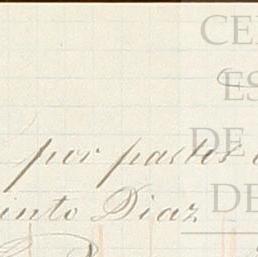 CE
ES
por pastos
DE
into Diaz
DE